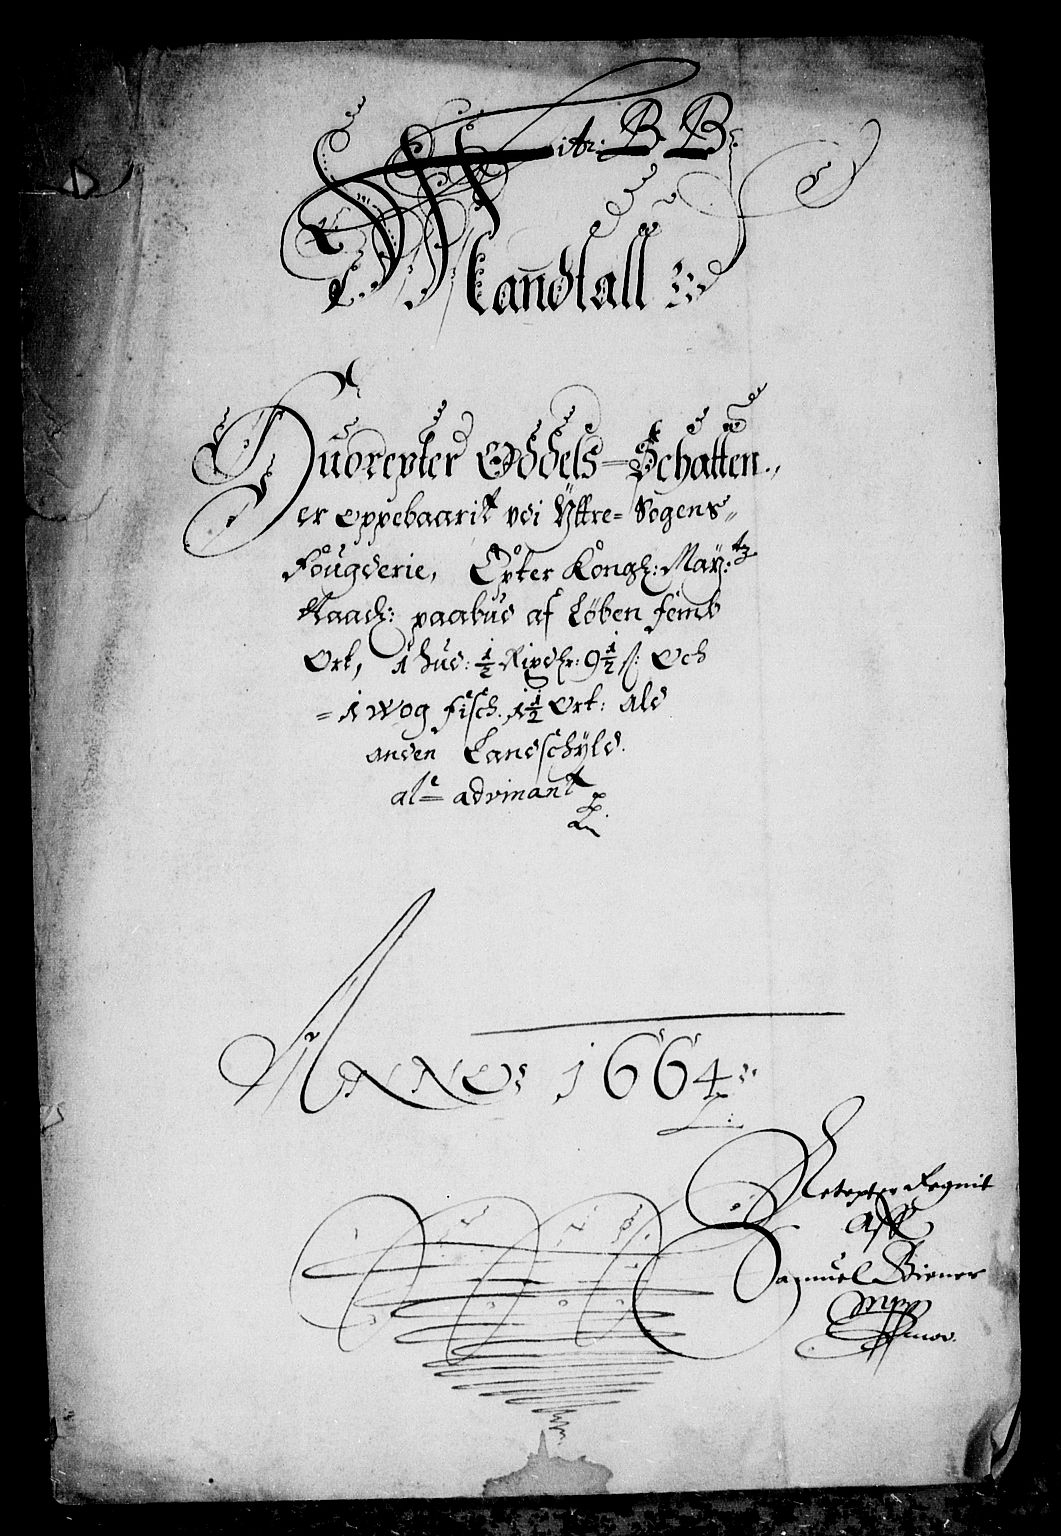 Litr: B B:
Mandtall
Huorepter Oddels-Schatten.,
er oppebaarit vdi Yttre= Sogens
Fougderie, Epter Kongl: May:tz
Naad: paabud af Løben femb
Ort, 1 hud: ½ Rixdr: 9½ ß: Och
= 1 wog fisch. 1½ Ort: Ald
anden Landschyld.
al= advinant
ANNO: 1664:
Aff
Samuel
mpp